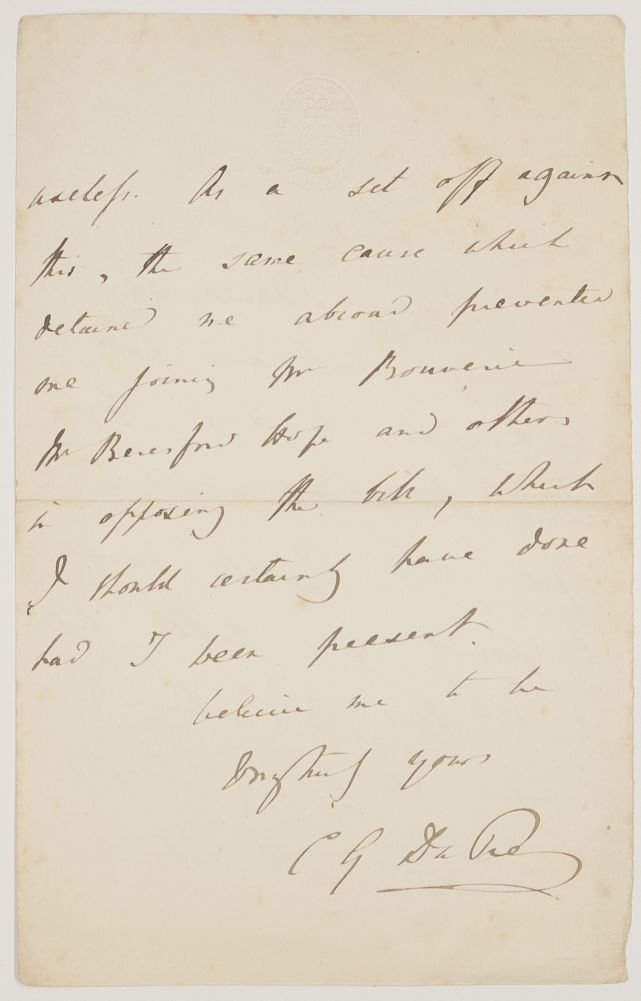 useless. As a set off against
this, the same cause which
detained me abroad prevented
me joining Mr Bouverie
Mr Beresford Hope and others
in opposing the bill, which
I should certainly have done
had I been present.
believe me to be
Very truly yours
C G Du Pre